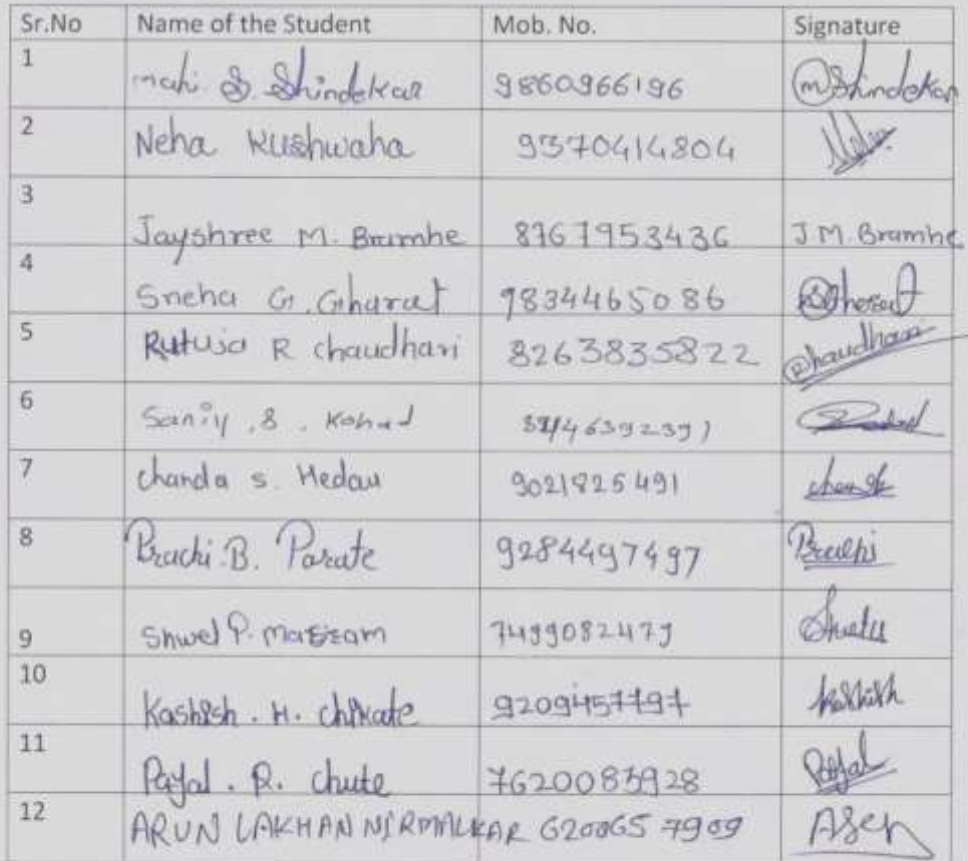 Sr.No Name of the Student Mob. No. Signature
1 Mahi. S. Shindekar 9860966196 m Shindekar
2 Neha Kushwaha 9370414804 Neha
3 Jayshree M. Bramhe 8767953436 J M. Bramhe
4 Sneha G. Gharat 9834465086
5 Rutuja R chaudhari 8263835822 R chaudhari
6 Saniy . S . Kohad
7 Chanda s. Hedau 9021825491
8 Prachi. B. Parate 9284497497 Prachi
9 Shwet P. 7499082479 Shweta
10 Kashish . H. Chikate 9209457797 kashish
11 Payal . R. Chute 7620083928 Payal
12 ARUN LAKHAN NIRMALKAR 6200657909